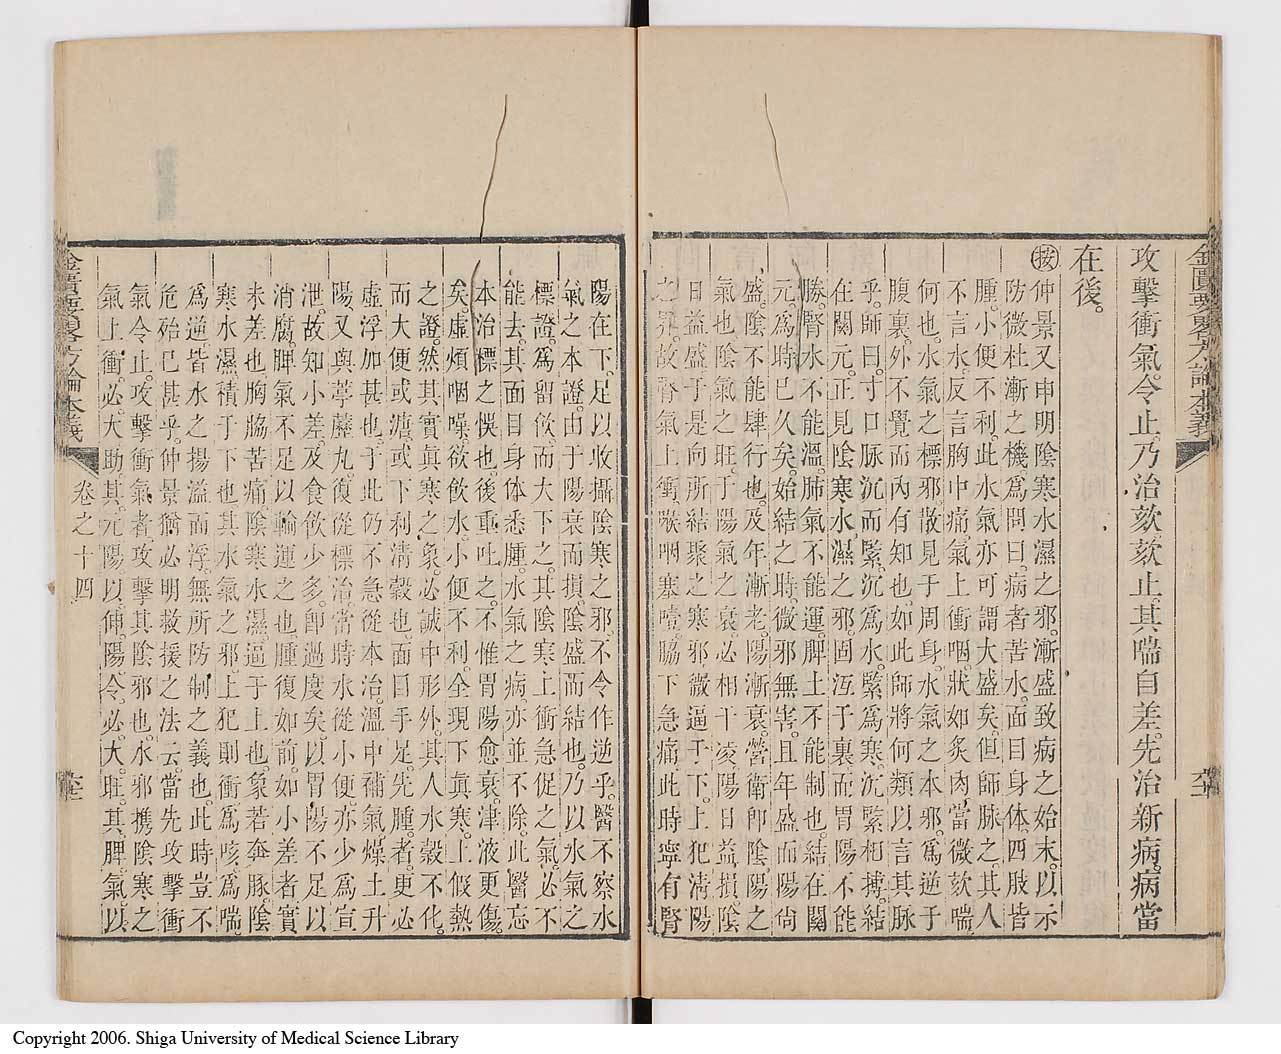 金匱要略方論本義
攻擊衝氣令止乃治欬欬止其喘自差先治新病病當
在後。
按 仲景又申明陰寒水濕之邪漸盛致病之始末以示
防微杜漸之機爲問曰病者苦水面目身体四肢皆
腫小便不利此水氣亦可謂大盛矣但師脉之其人
不言水反言胸中痛氣上衝咽狀如炙肉當微欬喘
何也水氣之標邪散見于周身水氣之本邪爲逆于
腹裏外不覺而內有知也如此師將何類以言其脉
乎師曰寸口脉沉而緊沉爲水緊爲寒沉緊相摶結
在關元正見陰寒水濕之邪固沍于裏而胃陽不能
勝腎水不能溫肺氣不能運脾土不能制也結在關
元爲時已久矣始結之時微邪無害且年盛而陽尙
盛陰不能肆行也及年漸老陽漸衰營衛卽陰陽之
氣也陰氣之旺于陽氣之衰必相干凌陽日益損陰
日益盛于是向所結聚之寒邪微逼于下上犯淸陽
之界故腎氣上衝喉咽塞噎脇下急痛此時寧有腎
陽在下足以收攝陰寒之邪不令作逆乎醫不察水
氣之本證由于陽衰而損陰盛而結也乃以水氣之
標證爲留飮而大下之其陰寒上衝急促之氣必不
能去其面目身体悉腫水氣之病亦並不除此醫忘
本治標之悞也後重吐之不惟胃陽愈衰津液更傷
矣虛煩咽噪欲飮水小便不利全現下眞寒上假熱
之證然其實眞寒之象必誠中形外其人水穀不化
而大便或溏或下利淸穀也面目手足先腫者更必
虛浮加甚也于此仍不急從本治溫中補氣燥土升
陽又與葶藶丸復從標治當時水從小便亦少爲宣
泄故知小差及食飮少多卽過度矣以胃陽不足以
消腐脾氣不足以輸運之也腫復如前如小差者實
未差也胸脇苦痛陰寒水濕逼于上也象若奔豚陰
寒水濕積于下也其水氣之邪上犯則衝爲咳爲喘
爲逆皆水之揚溢而浮無所防制之義也此時豈不
危殆已甚乎仲景猶必明救援之法云當先攻擊衝
氣令止攻擊衝氣者攻擊其陰邪也水邪携陰寒之
氣上衝必大助其元陽以伸陽令必大旺其脾氣以
金匱要略方論本義
卷之十四
Copyright 2006. Shiga University of Medical Science Library